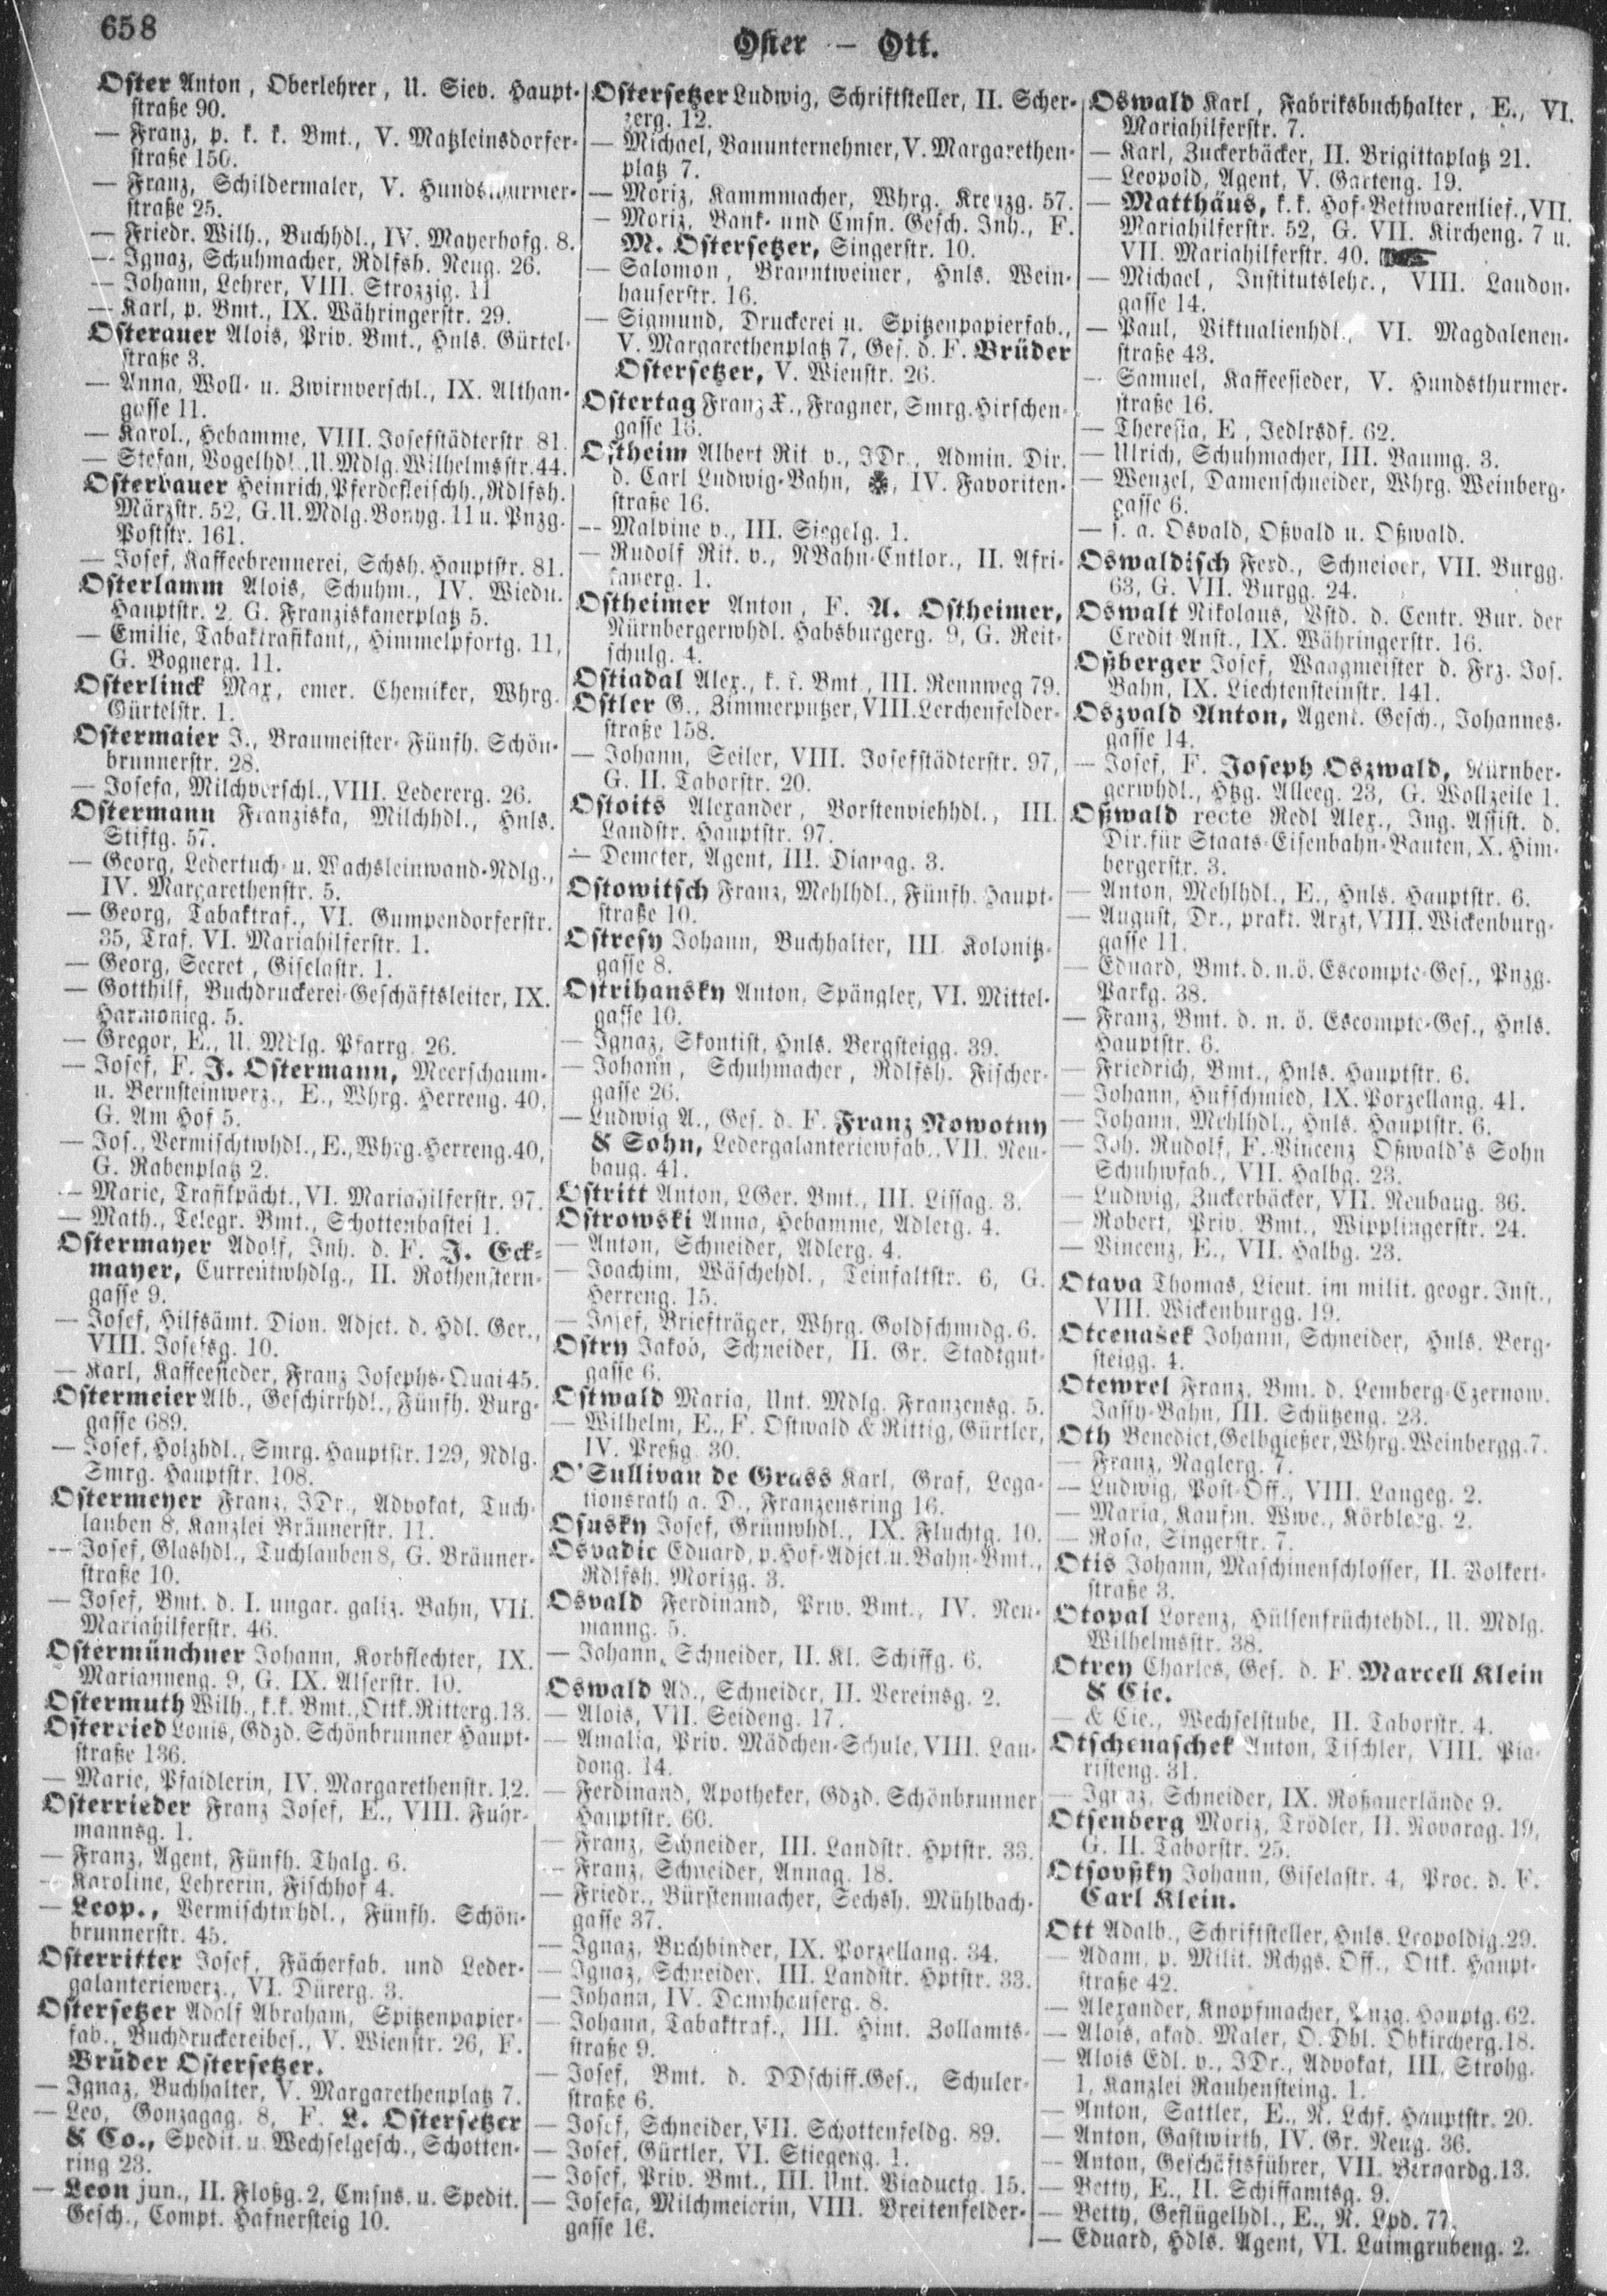 658
Oster — Ott.
Oster Anton, Oberlehrer, U. Siev. Haupt-
straße 90.
— Franz, p. k. k. Bmt., V. Matzleinsdorfer-
straße 150.
— Franz, Schildermaler, V. Hundsthurmer-
straße 25.
— Friedr. Wilh., Buchhdl., IV. Mayerhofg. 8.
— Ignaz, Schuhmacher, Rdlfsh. Neug. 26.
— Johann, Lehrer, VIII. Strozzig. 11
— Karl, p. Bmt., IX. Währingerstr. 29.
Osterauer Alois, Priv. Bmt., Hnls. Gürtel-
straße 3.
— Anna, Woll- u. Zwirnverschl., IX. Althan-
gasse 11.
— Karol., Hebamme, VIII. Josefstädterstr. 81.
— Stefan, Vogelhdl., U. Mdlg. Wilhelmsstr. 44.
Osterbauer Heinrich, Pferdefleischh., Rdlfsh.
Märzstr. 52, G. U. Mdlg. Bonyg. 11 u. Pnzg.
Poststr. 161.
— Josef, Kaffeebrennerei, Schsh. Hauptstr. 81.
Osterlamm Alois, Schuhm., IV. Wiedn.
Hauptstr. 2, G. Franziskanerplatz 5.
— Emilie, Tabaktrafikant,, Himmelpfortg. 11,
G. Bognerg. 11.
Osterlinck Max, emer. Chemiker, Whrg.
Gürtelstr. 1.
Ostermaier J., Braumeister, Fünfh. Schön-
brunnerstr. 28.
— Josefa, Milchverschl., VIII. Ledererg. 26.
Ostermann Franziska, Milchhdl., Hnls.
Stiftg. 57.
— Georg, Ledertuch- u. Wachsleinwand-Ndlg.,
IV. Margarethenstr. 5.
— Georg, Tabaktraf., VI. Gumpendorferstr.
35, Traf. VI. Mariahilferstr. 1.
— Georg, Secret., Giselastr. 1.
— Gotthilf, Buchdruckerei-Geschäftsleiter, IX.
Harmonieg. 5.
— Gregor, E., U. Mdlg. Pfarrg. 26.
— Josef, F. J. Ostermann, Meerschaum-
u. Bernsteinwerz., E., Whrg. Herreng. 40,
G. Am Hof 5.
— Jos., Vermischtwhdl., E., Whrg. Herreng. 40,
G. Rabenplatz 2.
— Marie, Trafikpächt., VI. Mariahilferstr. 97.
— Math., Telegr. Bmt., Schottenbastei 1.
Ostermayer Adolf, Inh. d. F. J. Eck-
mayer, Currentwhdlg., II. Rothenstern-
gasse 9.
— Josef, Hilfsämt. Dion. Adjct. d. Hdl. Ger.,
VIII. Josefsg. 10.
— Karl, Kaffeesieder, Franz Josephs-Quai 45.
Ostermeier Alb., Geschirrhdl., Fünfh. Burg-
gasse 689.
— Josef, Holzhdl., Smrg. Hauptstr. 129, Ndlg.
Smrg. Hauptstr. 108.
Ostermeyer Franz, JDr., Advokat, Tuch-
lauben 8, Kanzlei Bräunerstr. 11.
— Josef, Glashdl., Tuchlauben 8, G. Bräuner-
straße 10.
— Josef, Bmt. d. I. ungar. galiz. Bahn, VII.
Mariahilferstr. 46.
Ostermünchner Johann, Korbflechter, IX.
Marianneng. 9, G. IX. Alserstr. 10.
Ostermuth Wilh., k. k. Bmt., Ottk. Ritterg. 13.
Osterried Louis, Gdzd. Schönbrunner Haupt-
straße 136.
— Marie, Pfaidlerin, IV. Margarethenstr. 12.
Osterrieder Franz Josef, E., VIII. Fuhr-
mannsg. 1.
— Franz, Agent, Fünfh. Thalg. 6.
— Karoline, Lehrerin, Fischhof 4.
— Leop., Vermischtwhdl., Fünfh. Schön-
brunnerstr. 45.
Osterritter Josef, Fächerfab. und Leder-
galanteriewerz., VI. Dürerg. 3.
Ostersetzer Adolf Abraham, Spitzenpapier-
fab., Buchdruckereibes., V. Wienstr. 26, F.
Brüder Ostersetzer.
— Ignaz, Buchhalter, V. Margarethenplatz 7.
— Leo, Gonzagag. 8, F. L. Ostersetzer
& Co., Spedit. u. Wechselgesch., Schotten-
ring 23.
— Leon jun., II. Floßg. 2, Cmsns. u. Spedit.
Gesch., Compt. Hafnersteig 10.
Ostersetzer Ludwig, Schriftsteller, II. Scher-
zerg. 12.
— Michael, Bauunternehmer, V. Margarethen-
platz 7.
— Moriz, Kammmacher, Whrg. Kreuzg. 57.
— Moriz, Bank- und Cmsn. Gesch. Inh., F.
M. Ostersetzer, Singerstr. 10.
— Salomon, Branntweiner, Hnls. Wein-
hauserstr. 16.
— Sigmund, Druckerei u. Spitzenpapierfab.,
V. Margarethenplatz 7, Ges. d. F. Brüder
Ostersetzer, V. Wienstr. 26.
Ostertag Franz X., Fragner, Smrg. Hirschen-
gasse 18.
Ostheim Albert Rit. v., JDr., Admin. Dir.
d. Carl Ludwig-Bahn, IV. Favoriten-
straße 16.
— Malvine v., III. Siegelg. 1.
— Rudolf Rit. v., NBahn-Cntlor., II. Afri-
kanerg. 1.
Ostheimer Anton, F. A. Ostheimer,
Nürnbergerwhdl. Habsburgerg. 9, G. Reit-
schulg. 4.
Ostiadal Alex., k. k. Bmt., III. Rennweg 79.
Ostler G., Zimmerputzer, VIII. Lerchenfelder-
straße 158.
— Johann, Seiler, VIII. Josefstädterstr. 97,
G. II. Taborstr. 20.
Ostoits Alexander, Borstenviehhdl., III.
Landstr. Hauptstr. 97.
— Demeter, Agent, III. Dianag. 3.
Ostowitsch Franz, Mehlhdl., Fünfh. Haupt-
straße 10.
Ostresy Johann, Buchhalter, III. Kolonitz-
gasse 8.
Ostrihansky Anton, Spängler, VI. Mittel-
gasse 10.
— Ignaz, Skontist, Hnls. Bergsteigg. 39.
— Johann, Schuhmacher, Rdlfsh. Fischer-
gasse 26.
— Ludwig A., Ges. d. F. Franz Nowotny
& Sohn, Ledergalanteriewfab., VII. Neu-
baug. 41.
Ostritt Anton, LGer. Bmt., III. Lissag. 3.
Ostrowski Anna, Hebamme, Adlerg. 4.
— Anton, Schneider, Adlerg. 4.
— Joachim, Wäschehdl., Teinfaltstr. 6, G.
Herreng. 15.
— Josef, Briefträger, Whrg. Goldschmidg. 6.
Ostry Jakob, Schneider, II. Gr. Stadtgut-
gasse 6.
Ostwald Maria, Unt. Mdlg. Franzensg. 5.
— Wilhelm, E., F. Ostwald & Rittig, Gürtler,
IV. Preßg. 30.
O'Sullivan de Grass Karl, Graf, Lega-
tionsrath a. D., Franzensring 16.
Osusky Josef, Grünwhdl., IX. Fluchtg. 10.
Osvadic Eduard, p. Hof-Adjct. u. Bahn-Bmt.,
Rdlfsh. Morizg. 3.
Osvald Ferdinand, Priv. Bmt., IV. Neu-
manng. 5.
— Johann, Schneider, II. Kl. Schiffg. 6.
Oswald Ad., Schneider, II. Vereinsg. 2.
— Alois, VII. Seideng. 17.
— Amalia, Priv. Mädchen-Schule, VIII. Lau-
dong. 14.
— Ferdinand, Apotheker, Gdzd. Schönbrunner
Hauptstr. 60.
— Franz, Schneider, III. Landstr. Hptstr. 33.
— Franz, Schneider, Annag. 18.
— Friedr., Bürstenmacher, Sechsh. Mühlbach-
gasse 37.
— Ignaz, Buchbinder, IX. Porzellang. 34.
— Ignaz, Schneider, III. Landstr. Hptstr. 33.
— Johann, IV. Dannhauserg. 8.
— Johann, Tabaktraf., III. Hint. Zollamts-
straße 9.
— Josef, Bmt. d. DDschiff.Ges., Schuler-
straße 6.
— Josef, Schneider, VII. Schottenfeldg. 89.
— Josef, Gürtler, VI. Stiegeng. 1.
— Josef, Priv. Bmt., III. Unt. Viaductg. 15.
— Josefa, Milchmeierin, VIII. Breitenfelder-
gasse 16.
Oswald Karl, Fabriksbuchhalter, E., VI.
Mariahilferstr. 7.
— Karl, Zuckerbäcker, II. Brigittaplatz 21.
— Leopold, Agent, V. Garteng. 19.
— Matthäus, k. k. Hof-Bettwarenlief., VII.
Mariahilferstr. 52, G. VII. Kircheng. 7 u.
VII. Mariahilferstr. 40.
— Michael, Institutslehr., VIII. Laudon-
gasse 14.
— Paul, Viktualienhdl., VI. Magdalenen-
straße 43.
— Samuel, Kaffeesieder, V. Hundsthurmer-
straße 16.
— Theresia, E., Jedlrsdf. 62.
— Ulrich, Schuhmacher, III. Baumg. 3.
— Wenzel, Damenschneider, Whrg. Weinberg-
gasse 6.
— s. a. Osvald, Oßvald u. Oßwald.
Oswaldisch Ferd., Schneider, VII. Burgg.
63, G. VII. Burgg. 24.
Oswalt Nikolaus, Vstd. d. Centr. Bur. der
Credit-Anst., IX. Währingerstr. 16.
Oßberger Josef, Waagmeister d. Frz. Jos.
Bahn, IX. Liechtensteinstr. 141.
Oszvald Anton, Agent. Gesch., Johannes-
gasse 14.
— Josef, F. Joseph Oszwald, Nürnber-
gerwhdl., Htzg. Alleeg. 23, G. Wollzeile 1.
Oßwald recte Redl Alex., Ing. Assist. d.
Dir. für Staats-Eisenbahn-Bauten, X. Him-
bergerstr. 3.
— Anton, Mehlhdl., E., Hnls. Hauptstr. 6.
— August, Dr., prakt. Arzt, VIII. Wickenburg-
gasse 11.
— Eduard, Bmt. d. n. ö. Escompte-Ges., Pnzg.
Parkg. 38.
— Franz, Bmt. d. n. ö. Escompte-Ges., Hnls.
Hauptstr. 6.
— Friedrich, Bmt., Hnls. Hauptstr. 6.
— Johann, Hufschmied, IX. Porzellang. 41.
— Johann, Mehlhdl., Hnls. Hauptstr. 6.
— Joh. Rudolf, F. Vincenz Oßwald's Sohn
Schuhwfab., VII. Halbg. 23.
— Ludwig, Zuckerbäcker, VII. Neubaug. 36.
— Robert, Priv. Bmt., Wipplingerstr. 24.
— Vincenz, E., VII. Halbg. 23.
Otava Thomas, Lieut. im milit. geogr. Inst.,
VIII. Wickenburgg. 19.
Otcenašek Johann, Schneider, Hnls. Berg-
steigg. 4.
Otewrel Franz, Bmt. d. Lemberg-Czernow.
Jassy-Bahn, III. Schützeng. 23.
Oth Benedict, Gelbgießer, Whrg. Weinbergg. 7.
— Franz, Naglerg. 7.
— Ludwig, Post-Off., VIII. Langeg. 2.
— Maria, Kaufm. Wwe., Körblerg. 2.
— Rosa, Singerstr. 7.
Otis Johann, Maschinenschlosser, II. Volkert-
straße 3.
Otopal Lorenz, Hülsenfrüchtehdl., U. Mdlg.
Wilhelmsstr. 38.
Otrey Charles, Ges. d. F. Marcell Klein
& Cie.
— & Cie., Wechselstube, II. Taborstr. 4.
Otschenaschek Anton, Tischler, VIII. Pia-
risteng. 31.
— Ignaz, Schneider, IX. Roßauerlände 9.
Otsenberg Moriz, Trödler, II. Novarag. 19,
G. II. Taborstr. 25.
Otsovßky Johann, Giselastr. 4, Proc. d. F.
Carl Klein.
Ott Adalb., Schriftsteller, Hnls. Leopoldig. 29.
— Adam, p. Milit. Rchgs. Off., Ottk. Haupt-
straße 42.
— Alexander, Knopfmacher, Pnzg. Hauptg. 62.
— Alois, akad. Maler, O. Dbl. Obkircherg. 18.
— Alois Edl. v., JDr., Advokat, III. Strohg.
1, Kanzlei Rauhensteing. 1.
— Anton, Sattler, E., N. Lchf. Hauptstr. 20.
— Anton, Gastwirth, IV. Gr. Neug. 36.
— Anton, Geschäftsführer, VII. Bernardg. 13.
— Betty, E., II. Schiffamtsg. 9.
— Betty, Geflügelhdl., E., N. Lpd. 77.
— Eduard, Hdls. Agent, VI. Laimgrubeng. 2.